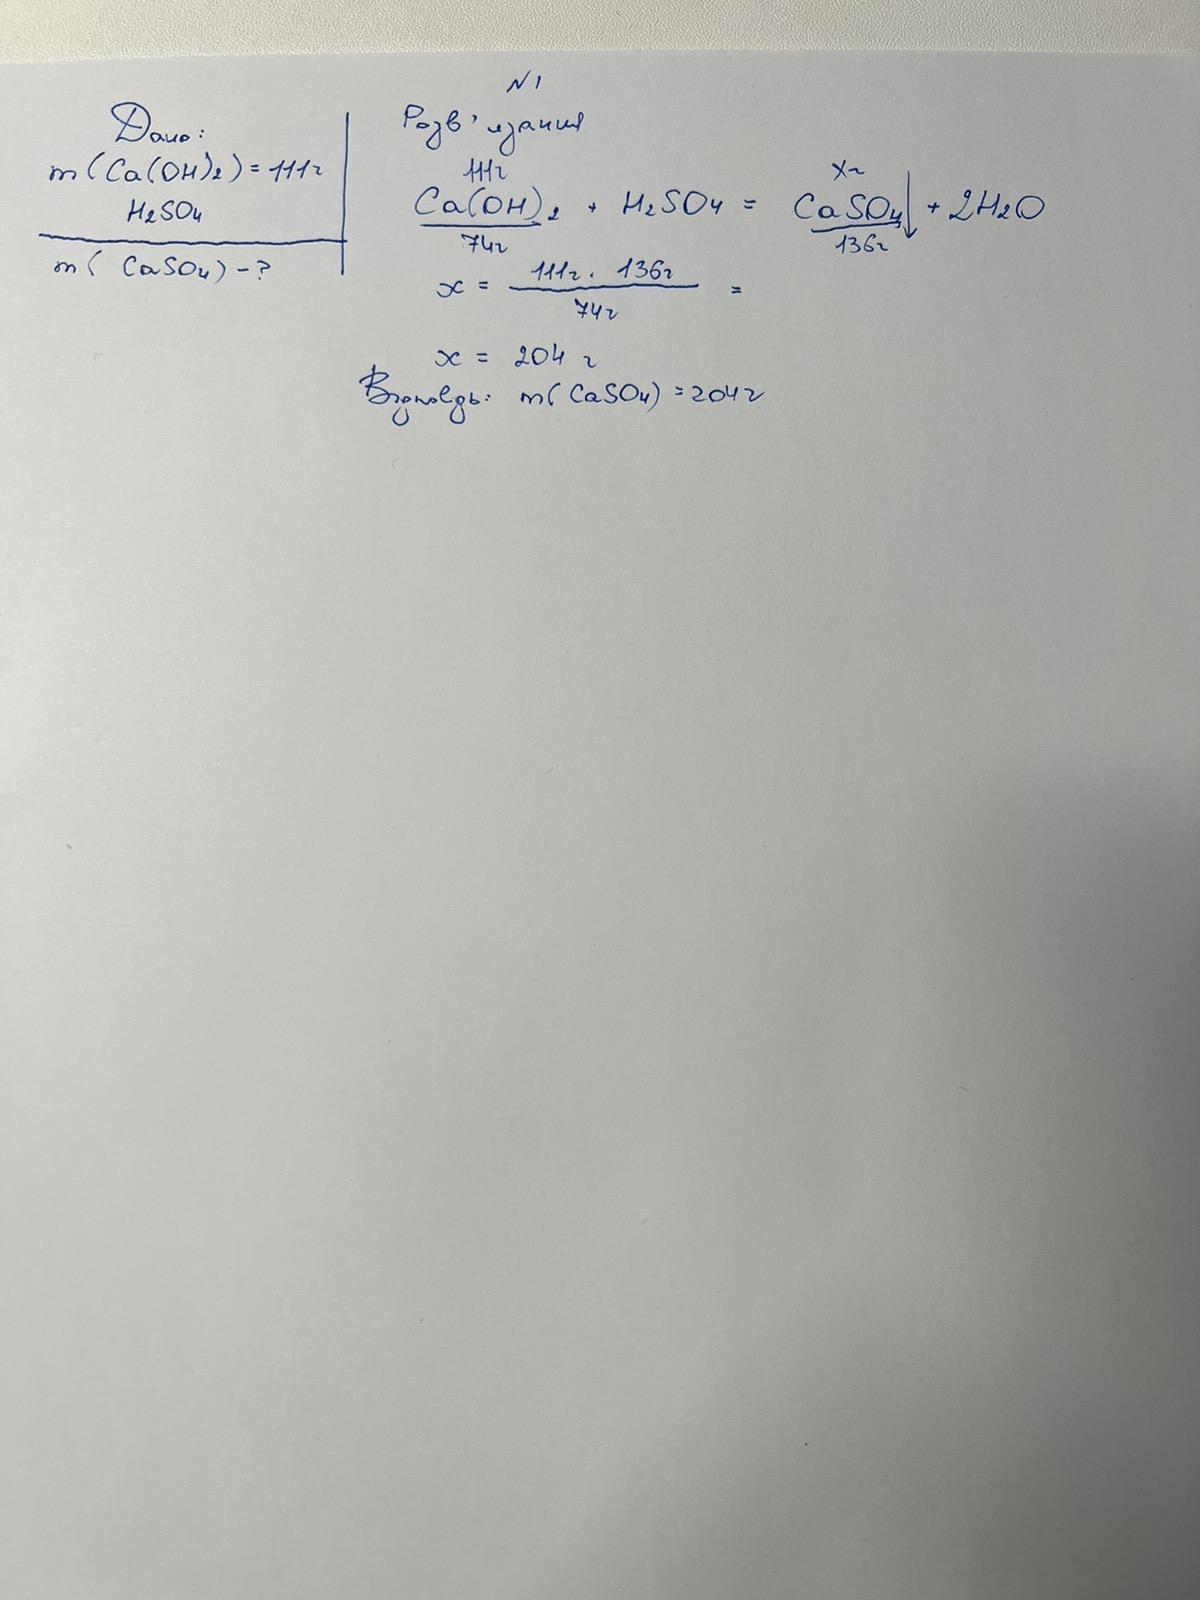 N1
Дано:
m(Ca(OH)2) = 111г
H2SO4
m( CaSO4) - ?
Розв'язання
111г xг
Ca(OH)2 + H2SO4 = CaSO4↓ + 2H2O
74г 136г
x = 111г · 136г / 74г =
x = 204 г
Відповідь: m( CaSO4) = 204г